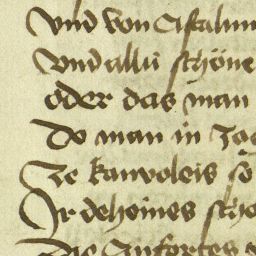 vnd von Astalun
vnd allu schöne
oder das man
Do man in Jag
Ze kanvoleis so
Ir deheines scho
Die Anfortes